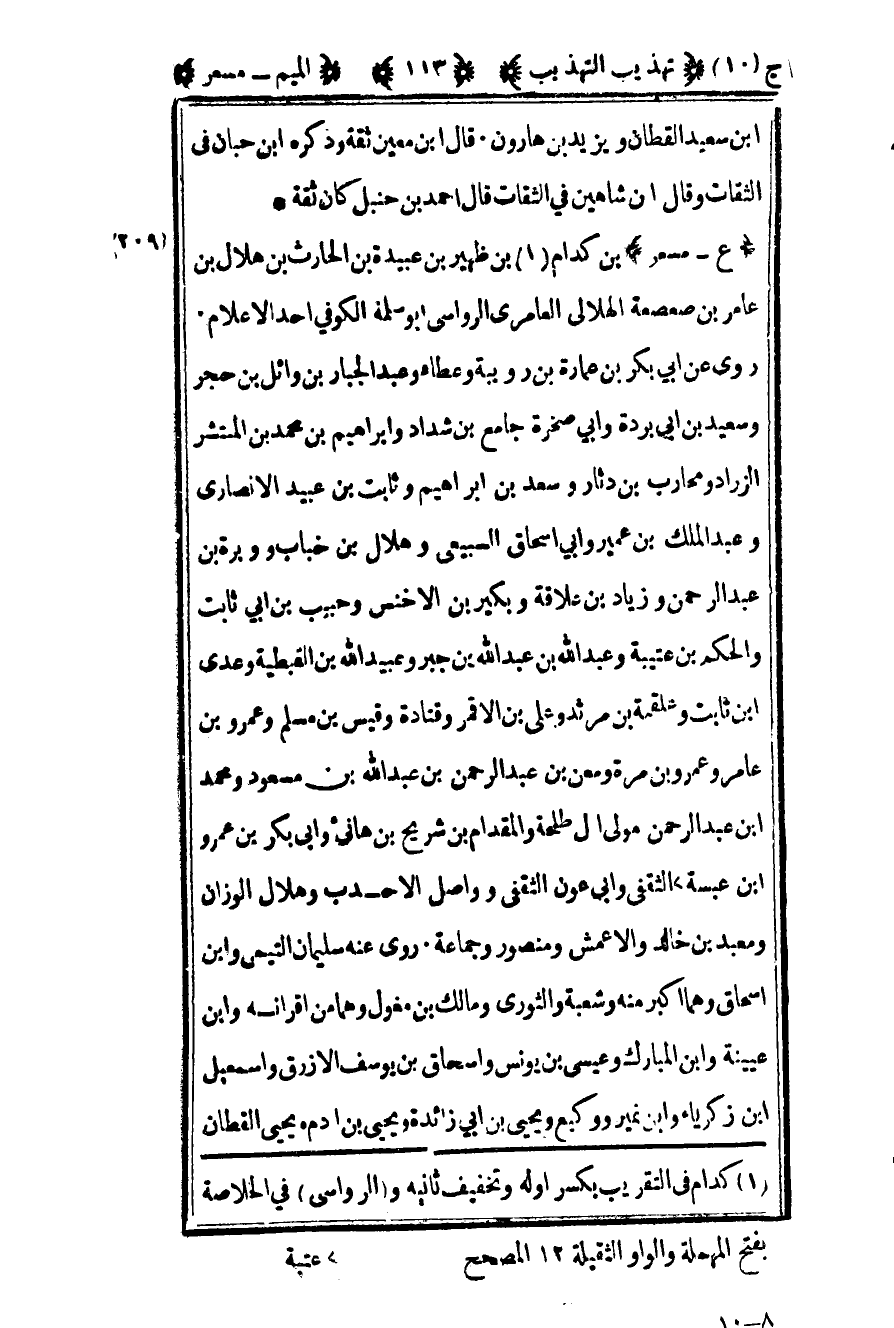 ج (١٠) ﴿ تهذيب التهذيب ﴾ ﴿ ١١٣ ﴾ ﴿ الميم ـ مسعر ﴾
ابن سعيد القطان ويزيد بن هارون · قال ابن معين ثقة وذكره ابن حبان فى
الثقات وقال ان شاهين في الثقات قال احمد بن حنبل كان ثقة *
﴿ ع ـ مسعر ﴾ بن كدام (١) بن ظهير بن عبيدة بن الحارث بن هلال بن
(٢٠٩)
عامر بن صعصعة الهلالى العامرى الرواسى ابو سلمة الكوفي احد الاعلام ·
روى عن ابي بكر بن عمارة بن رويبة وعطاء وعبد الجبار بن وائل بن حجر
وسعيد بن ابي بردة وابي صخرة جامع بن شداد وابراهيم بن محمد بن المنتشر
الزراد ومحارب بن دثار و سعد بن ابراهيم و ثابت بن عبيد الانصارى
و عبد الملك بن عمير وابي اسحاق السبيعى و هلال بن خباب و وبرة بن
عبد الرحمن و زياد بن علاقة و بكير بن الاخنس وحبيب بن ابي ثابت
والحكم بن عتيبة وعبد الله بن عبد الله بن جبر وعبيد الله بن القبطية وعدى
ابن ثابت وعلقمة بن مرثد وعلى بن الاقمر وقتادة وقيس بن مسلم وعمرو بن
عامر وعمرو بن مرة ومعن بن عبد الرحمن بن عبد الله بن مسعود ومحمد
ابن عبد الرحمن مولى ال طلحة والمقدام بن شريح بن هانئ وابى بكر بن عمرو
ابن عبسة > الثقفى وابي عون الثقفى و واصل الاحـدب وهلال الوزان
ومعبد بن خالد والاعمش ومنصور وجماعة · روى عنه سليمان التيمى وابن
اسحاق وهما اكبر منه وشعبة والثورى ومالك بن مغول وهما من اقرانه وابن
عيينة وابن المبارك وعيسى بن يونس واسحاق بن يوسف الازرق واسمعيل
ابن زكرياء وابن نمير ووكيع ويحيى بن ابي زائدة ويحيى بن ادم ويحيى القطان
(١) كدام فى التقريب بكسر اوله وتخفيف ثانيه و (الرواسى) في الخلاصة
بفتح المهملة والواو الثقيلة ١٢ المصحح > عتبة
١٠ـ٨